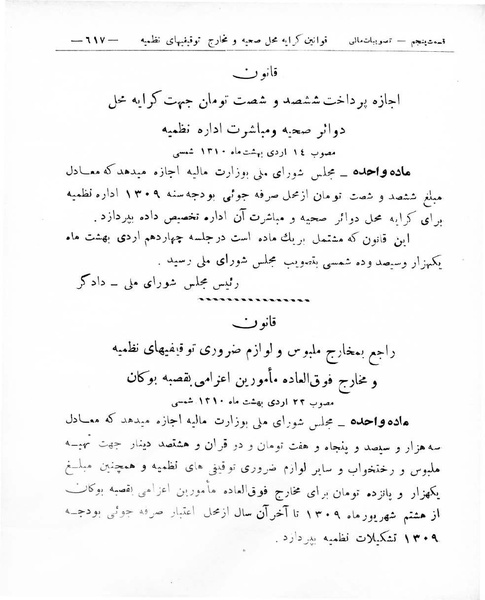 قسمت پنجم — تصویبات مالی قوانین کرایه محل صحیه و مخارج توقیفیهای نظمیه —۶۱۷—
قانون
اجازه پرداخت ششصد و شصت تومان جهت کرایه محل
دوائر صحیه ومباشرت اداره نظمیه
مصوب ۱۴ اردی بهشت ماه ۱۳۱۰ شمسی
ماده واحده — مجلس شورای ملی بوزارت مالیه اجازه میدهد که معادل
مبلغ ششصد و شصت تومان ازمحل صرفه جوئی بودجه سنه ۱۳۰۹ اداره نظمیه
برای کرایه محل دوائر صحیه و مباشرت آن اداره تخصیص داده بپردازد .
این قانون که مشتمل بریك ماده است درجلسه چهاردهم اردی بهشت ماه
یکهزار وسیصد وده شمسی بتصویب مجلس شورای ملی رسید .
رئیس مجلس شورای ملی — دادگر
قانون
راجع بمخارج ملبوس و لوازم ضروری توقیفیهای نظمیه
و مخارج فوق‌العاده مأمورین اعزامی بقصبه بوکان
مصوب ۲۳ اردی بهشت ماه ۱۳۱۰ شمسی
ماده واحده — مجلس شورای ملی بوزارت مالیه اجازه میدهد که معادل
سه هزار و سیصد و پنجاه و هفت تومان و دو قران و هشتصد دینار جهت تهیه
ملبوس و رختخواب و سایر لوازم ضروری توقیفی های نظمیه و همچنین مبلغ
یکهزار و پانزده تومان برای مخارج فوق‌العاده مأمورین اعزامی بقصبه بوکان
از هشتم شهریورماه ۱۳۰۹ تا آخر آن سال ازمحل اعتبار صرفه جوئی بودجه
۱۳۰۹ تشکیلات نظمیه بپردازد .